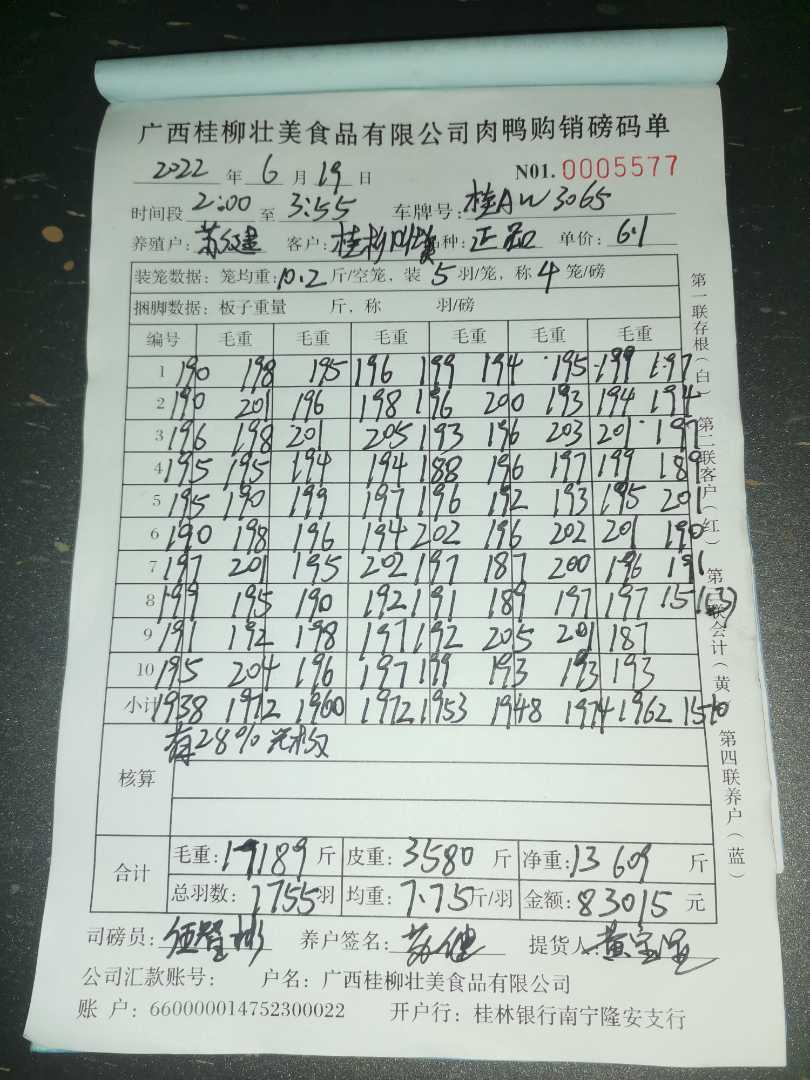 广西桂柳壮美食品有限公司肉鸭购销磅码单
2022 年 6 月 19 日 N01. 0005577
时间段 2:00 至 3:55 车牌号: 桂AW3065
养殖户: 苏健 客户: 桂柳 品种: 正品 单价: 6.1
装笼数据: 笼均重: 10.2 斤/空笼, 装 5 羽/笼, 称 4 笼/磅
捆脚数据: 板子重量 斤, 称 羽/磅
编号 毛重 毛重 毛重 毛重 毛重 毛重
1 190 198 195 196 199 194 195 199 197
2 190 201 196 198 196 200 193 194 194
3 196 198 201 205 193 196 203 201 197
4 195 195 194 194 188 196 197 199 189
5 195 190 199 197 196 192 193 195 201
6 190 198 196 194 202 196 202 201 190
7 197 201 195 202 197 187 200 196 191
8 199 195 190 192 191 189 197 197 151(3)
9 191 192 198 197 192 205 201 187
10 195 204 196 197 199 193 193 193
小计 1938 1972 1960 1972 1953 1948 1974 1962 1510
有28%
核算
合计 毛重: 17189 斤 皮重: 3580 斤 净重: 13609 斤
总羽数: 1755 羽 均重: 7.75 斤/羽 金额: 83015 元
司磅员: 养户签名: 苏健 提货人: 黄
公司汇款账号: 户名: 广西桂柳壮美食品有限公司
账 户: 660000014752300022 开户行: 桂林银行南宁隆安支行
第一联存根(白) 第二联客户(红) 第三联会计(黄) 第四联养户(蓝)